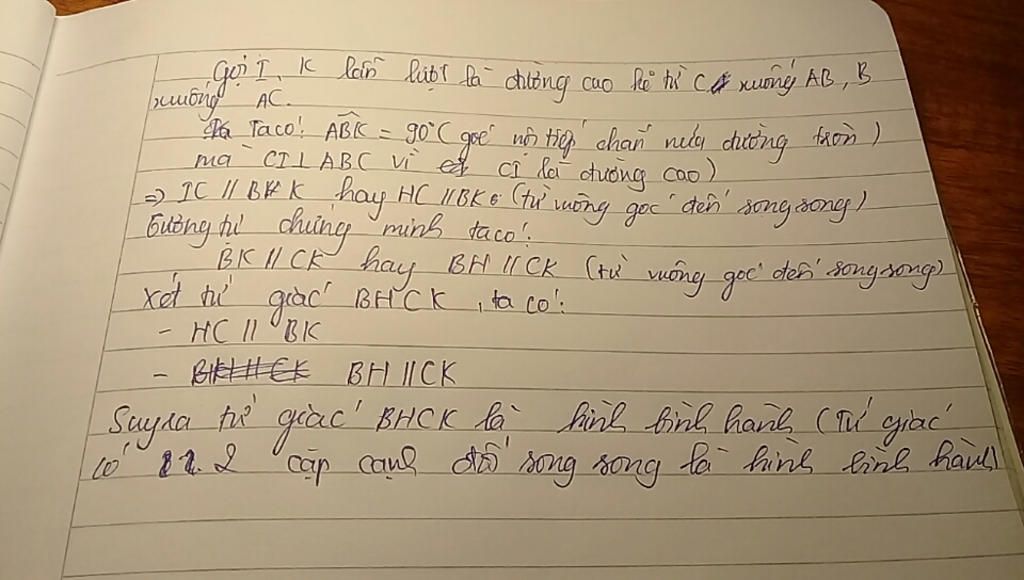 Gọi I, K lần lượt là đường cao kẻ từ C xuống AB, B
xuống AC.
Ta có: ABK = 90° (góc nội tiếp chắn nửa đường tròn)
mà CI ⊥ ABC vì CI là đường cao)
=> IC // BK hay HC // BK (từ vuông góc đến song song)
Tương tự chứng minh ta có:
BK // CK hay BH // CK (từ vuông góc đến song song)
Xét tứ giác BHCK, ta có:
- HC // BK
- BH // CK
Suy ra tứ giác BHCK là hình bình hành (Tứ giác
có 2 cặp cạnh đối song song là hình bình hành)